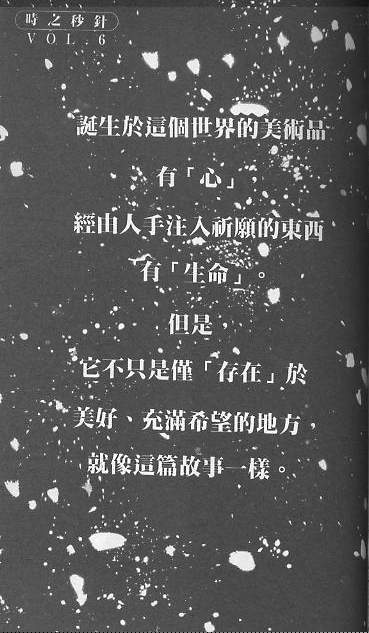 時之秒針
VOL.6
誕生於這個世界的美術品
有「心」，
經由人手注入祈願的東西
有「生命」。
但是，
它不只是僅「存在」於
美好、充滿希望的地方，
就像這篇故事一樣。